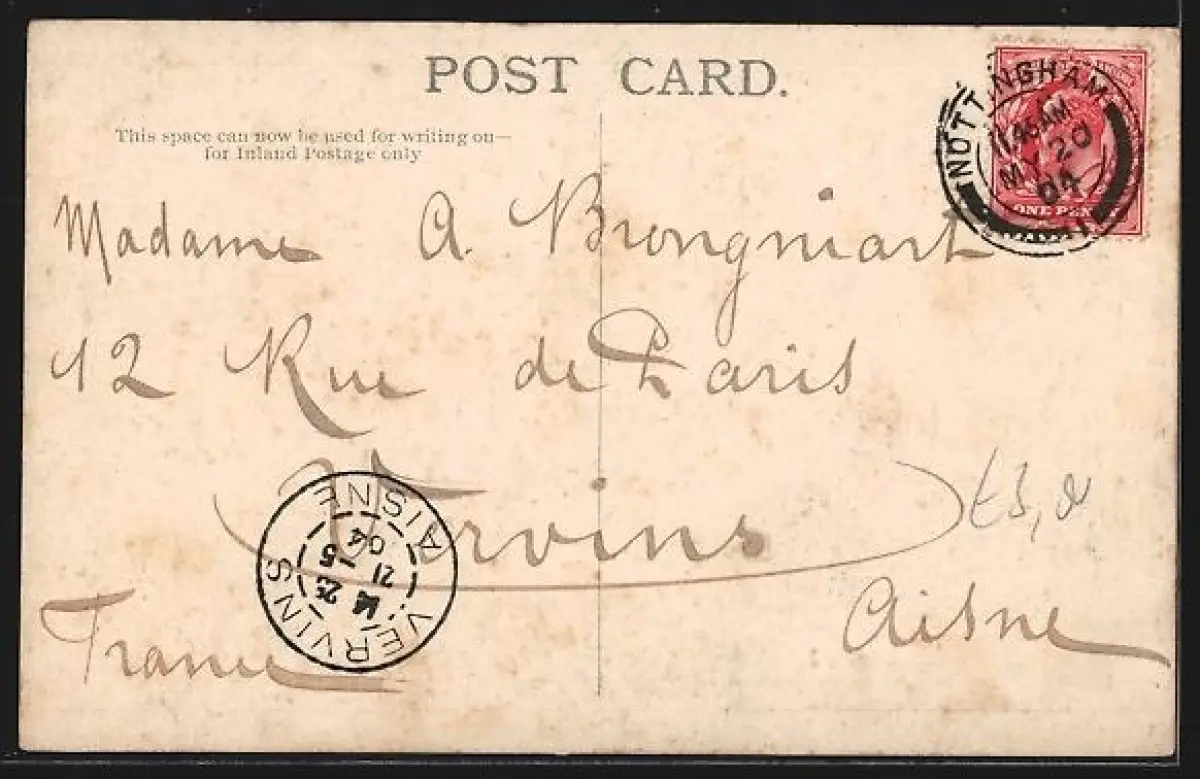 POST CARD.
This space can now be used for writing on—
for Inland Postage only
NOTTINGHAM
11.45AM
MY 20
04
ONE PENNY
Madame A. Brongniart
12 Rue de Paris
Vervins
Aisne
France
VERVINS
AISNE
21 5
04